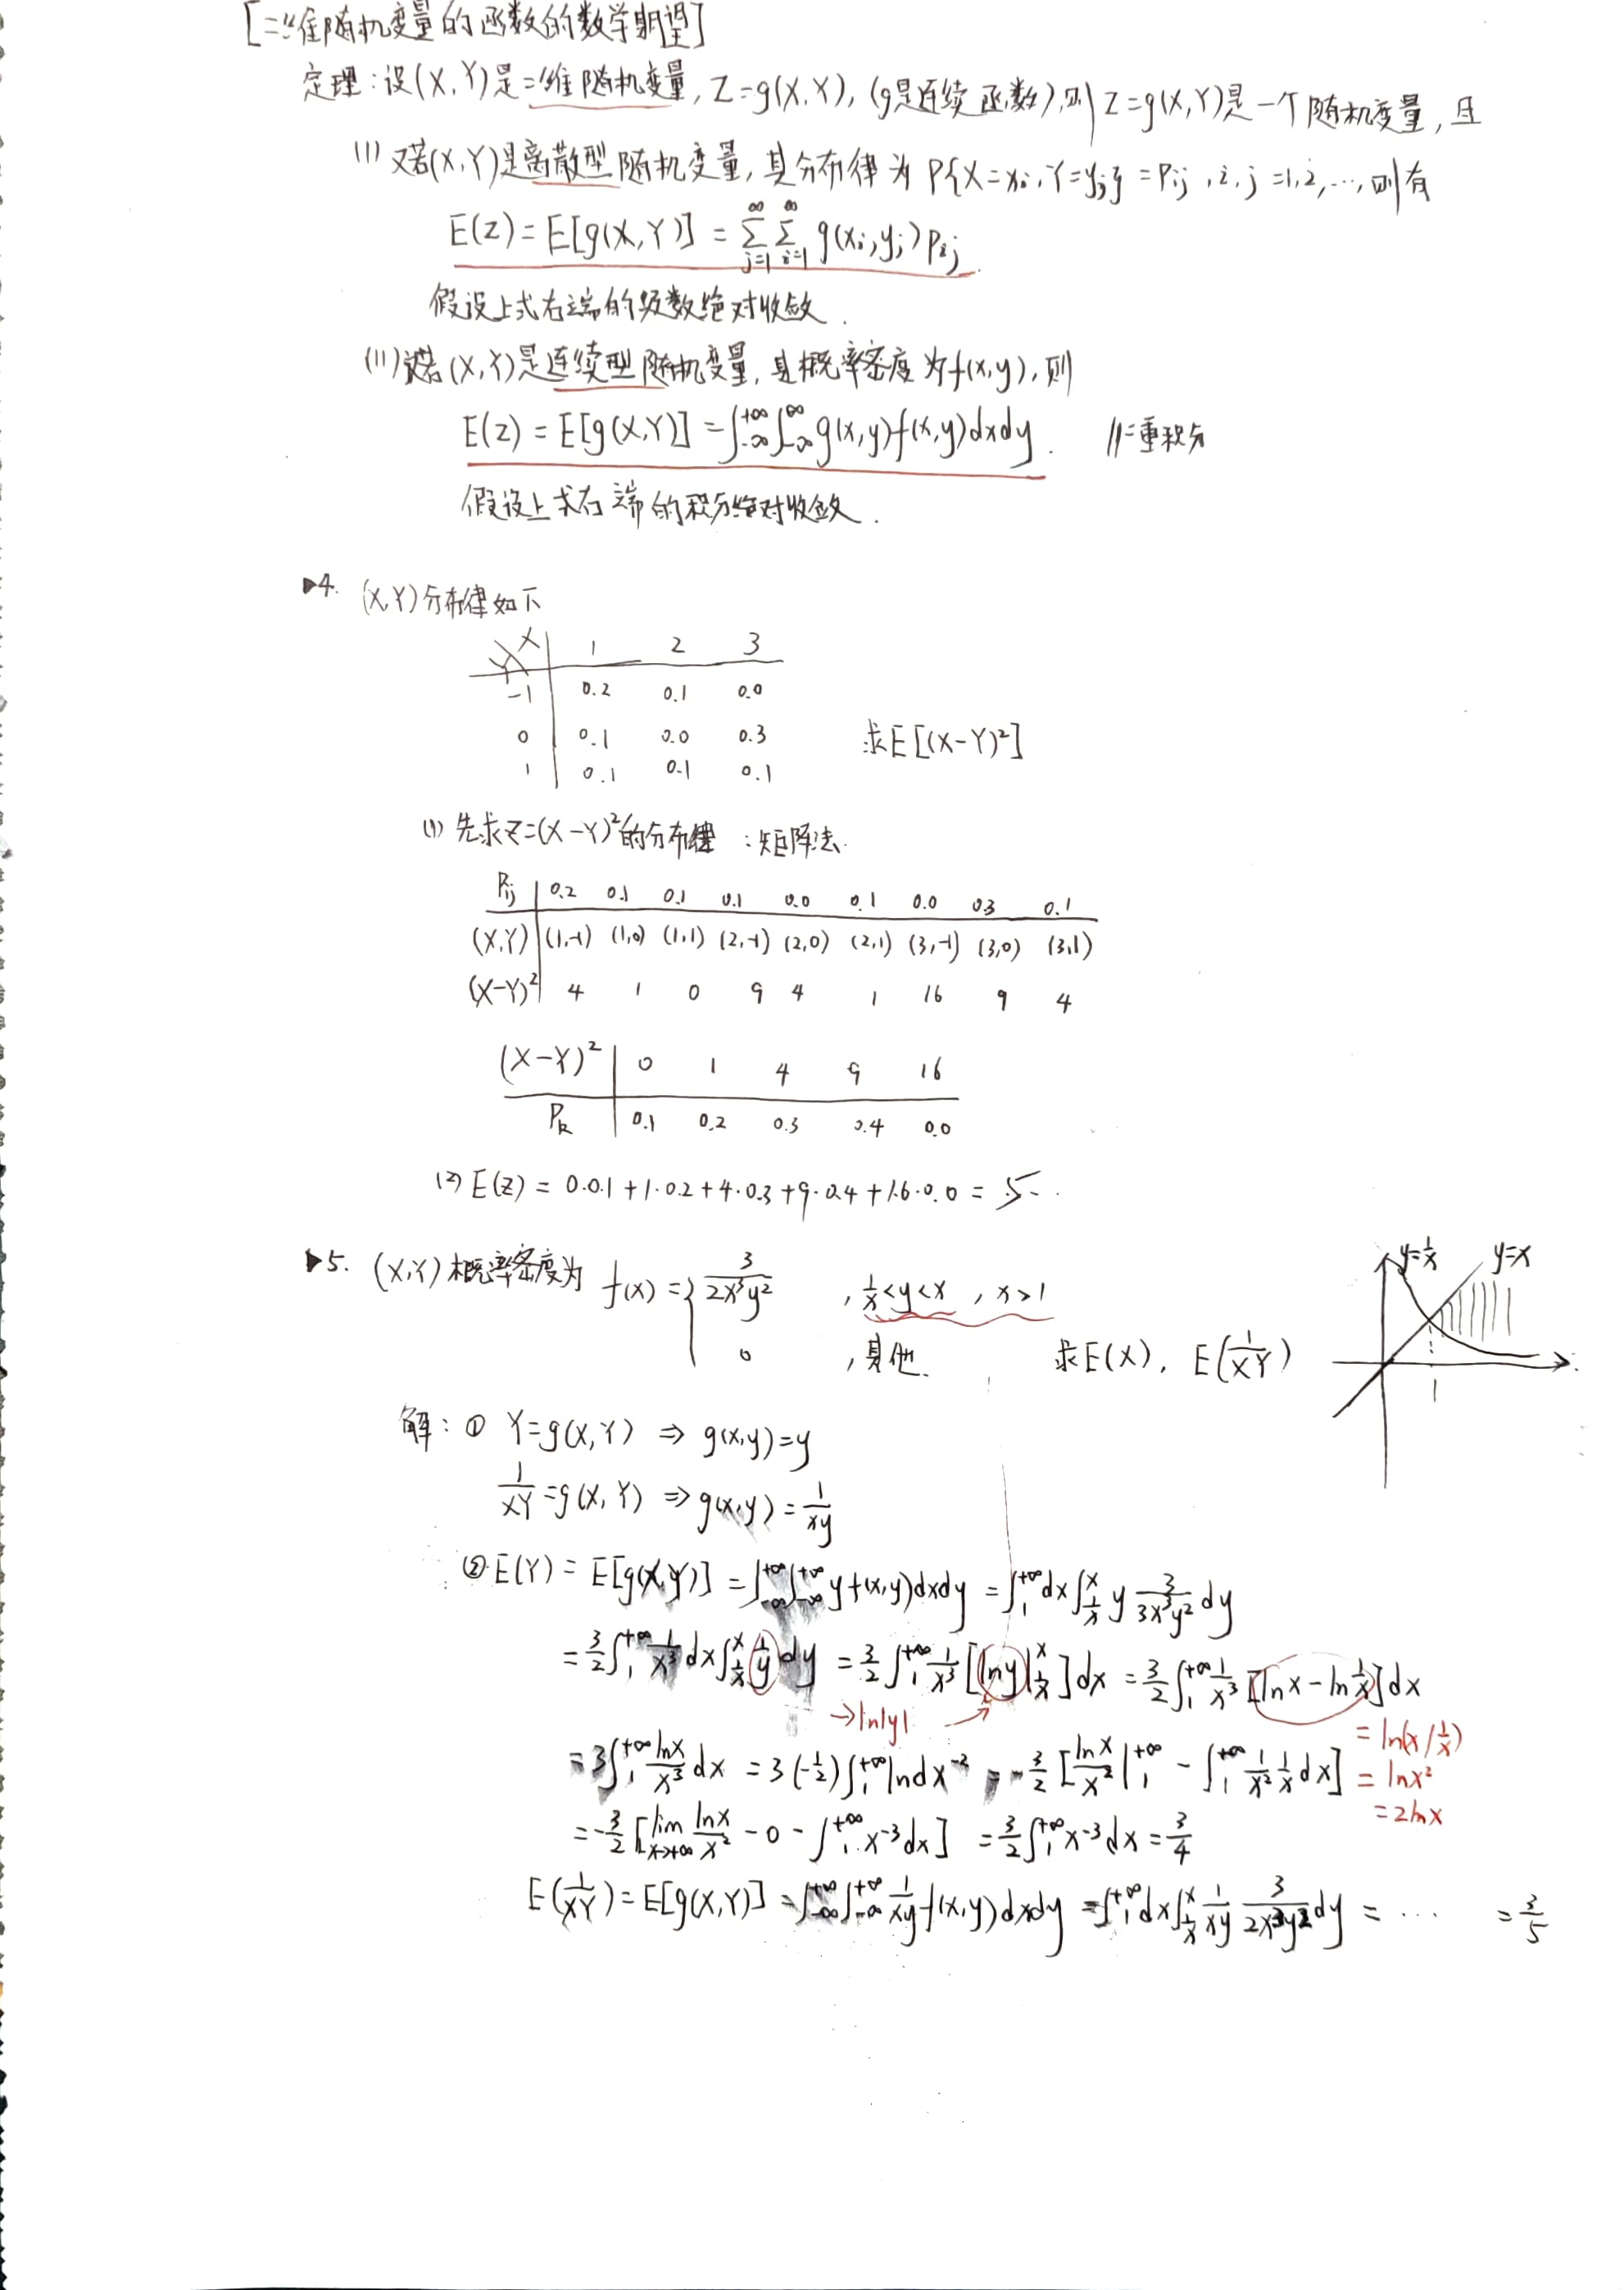 [二维随机变量的函数的数学期望]
定理:设(X,Y)是二维随机变量,Z=g(X,Y),(g是连续函数),则Z=g(X,Y)是一个随机变量,且
(1) 若(X,Y)是离散型随机变量,其分布律为P{X=xi,Y=yj}=Pij,i,j=1,2,…,则有
E(Z)=E[g(X,Y)]=∑_{j=1}^{∞}∑_{i=1}^{∞}g(xi,yj)Pij.
假设上式右端的级数绝对收敛.
(11) 若(X,Y)是连续型随机变量,其概率密度为f(x,y),则
E(Z)=E[g(X,Y)]=∫_{-∞}^{+∞}∫_{-∞}^{∞}g(x,y)f(x,y)dxdy. //二重积分
假设上式右端的积分绝对收敛.
4. (X,Y)分布律如下
Y\X 1 2 3
-1 0.2 0.1 0.0
0 0.1 0.0 0.3 求E[(X-Y)²]
1 0.1 0.1 0.1
(1) 先求Z=(X-Y)²的分布律:矩阵法.
Pij 0.2 0.1 0.1 0.1 0.0 0.1 0.0 0.3 0.1
(X,Y) (1,-1) (1,0) (1,1) (2,-1) (2,0) (2,1) (3,-1) (3,0) (3,1)
(X-Y)² 4 1 0 9 4 1 16 9 4
(X-Y)² 0 1 4 9 16
Pk 0.1 0.2 0.3 0.4 0.0
(2) E(Z)=0·0.1+1·0.2+4·0.3+9·0.4+16·0.0=5.
5. (X,Y)概率密度为 f(x)={ 3/(2x³y²) , 1/x<y<x , x>1
0 ,其他. 求E(X), E(1/XY)
y=1/x y=x
1
解:① Y=g(X,Y) ⇒ g(x,y)=y
1/XY=g(X,Y) ⇒ g(x,y)=1/xy
② E(Y)=E[g(X,Y)]=∫_{-∞}^{+∞}∫_{-∞}^{+∞}yf(x,y)dxdy=∫_1^{+∞}dx∫_{1/x}^{x} y 3/(3x³y²) dy
=3/2∫_1^{+∞}1/x³dx∫_{1/x}^{x}1/y dy=3/2∫_1^{+∞}1/x³[lny|_{1/x}^{x}]dx=3/2∫_1^{+∞}1/x³[lnx-ln1/x]dx
→ln|y|
=ln(x/1/x)
=lnx²
=2lnx
=3∫_1^{+∞}lnx/x³dx=3(-1/2)∫_1^{+∞}lndx⁻²=-3/2[lnx/x²|_1^{+∞}-∫_1^{+∞}1/x² 1/x dx]
=-3/2[lim_{x→+∞}lnx/x²-0-∫_1^{+∞}x⁻³dx]=3/2∫_1^{+∞}x⁻³dx=3/4
E(1/XY)=E[g(X,Y)]=∫_{-∞}^{+∞}∫_{-∞}^{+∞}1/xy f(x,y)dxdy=∫_1^{+∞}dx∫_{1/x}^{x}1/xy 3/(2x³y²)dy=… =3/5